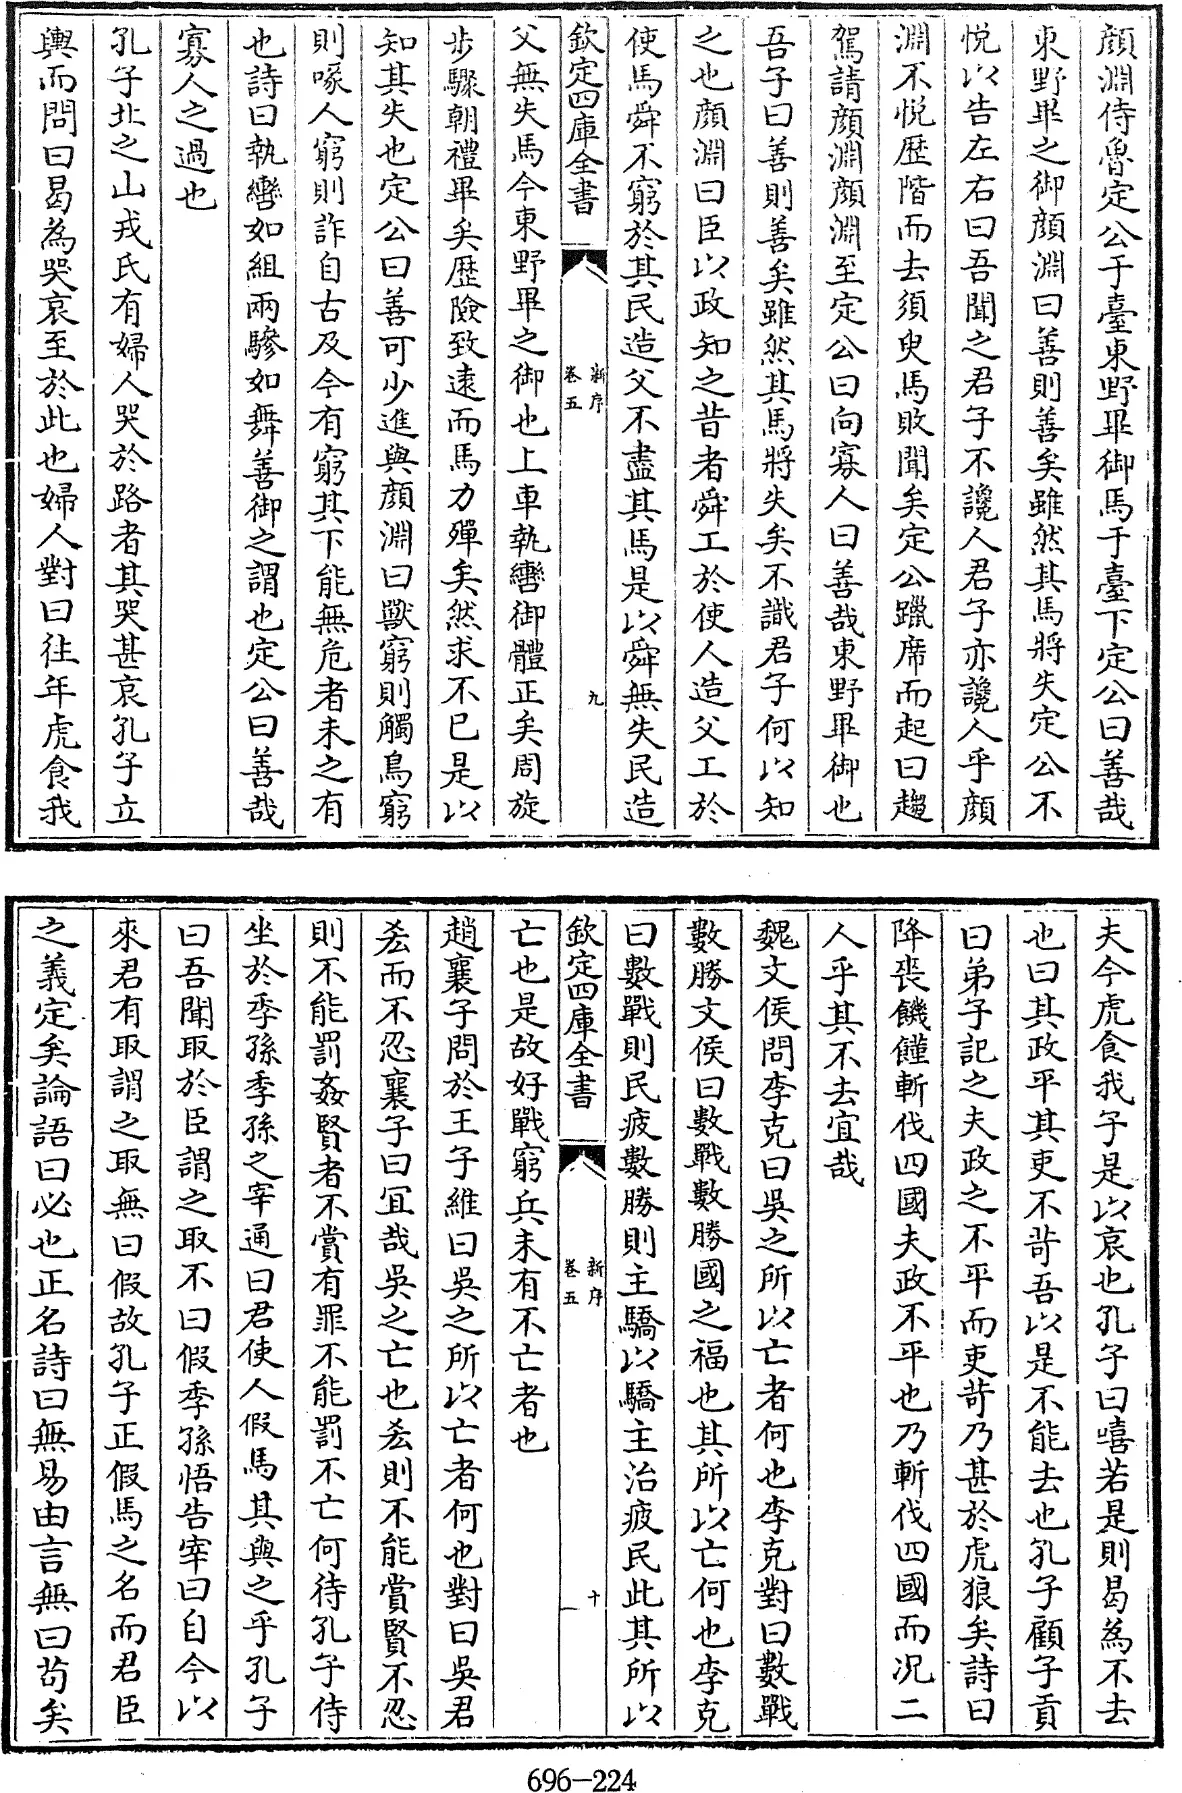 顔淵侍魯定公于臺東野畢御馬于臺下定公曰善哉
東野畢之御顔淵曰善則善矣雖然其馬將失定公不
悦以告左右曰吾聞之君子不讒人君子亦讒人乎顔
淵不悦歴階而去須臾馬敗聞矣定公躐席而起曰趨
駕請顔淵顔淵至定公曰向寡人曰善哉東野畢御也
吾子曰善則善矣雖然其馬將失矣不識君子何以知
之也顔淵曰臣以政知之昔者舜工於使人造父工於
使馬舜不窮於其民造父不盡其馬是以舜無失民造
欽定四庫全書
新序
卷五
九
父無失馬今東野畢之御也上車執轡御體正矣周旋
步驟朝禮畢矣歴險致逺而馬力殫矣然求不已是以
知其失也定公曰善可少進與顔淵曰獸窮則觸鳥窮
則啄人窮則詐自古及今有窮其下能無危者未之有
也詩曰執轡如組兩驂如舞善御之謂也定公曰善哉
寡人之過也
孔子北之山戎氏有婦人哭於路者其哭甚哀孔子立
輿而問曰曷為哭哀至於此也婦人對曰往年虎食我
夫今虎食我子是以哀也孔子曰嘻若是則曷為不去
也曰其政平其吏不苛吾以是不能去也孔子顧子貢
曰弟子記之夫政之不平而吏苛乃甚於虎狼矣詩曰
降喪饑饉斬伐四國夫政不平也乃斬伐四國而况二
人乎其不去宜哉
魏文侯問李克曰吳之所以亡者何也李克對曰數戰
數勝文侯曰數戰數勝國之福也其所以亡何也李克
曰數戰則民疲數勝則主驕以驕主治疲民此其所以
欽定四庫全書
新序
卷五
十
亡也是故好戰窮兵未有不亡者也
趙襄子問於王子維曰吳之所以亡者何也對曰吳君
吝而不忍襄子曰宜哉吳之亡也吝則不能賞賢不忍
則不能罰姦賢者不賞有罪不能罰不亡何待孔子侍
坐於季孫季孫之宰通曰君使人假馬其與之乎孔子
曰吾聞取於臣謂之取不曰假季孫悟告宰曰自今以
來君有取謂之取無曰假故孔子正假馬之名而君臣
之義定矣論語曰必也正名詩曰無易由言無曰苟矣
696-224